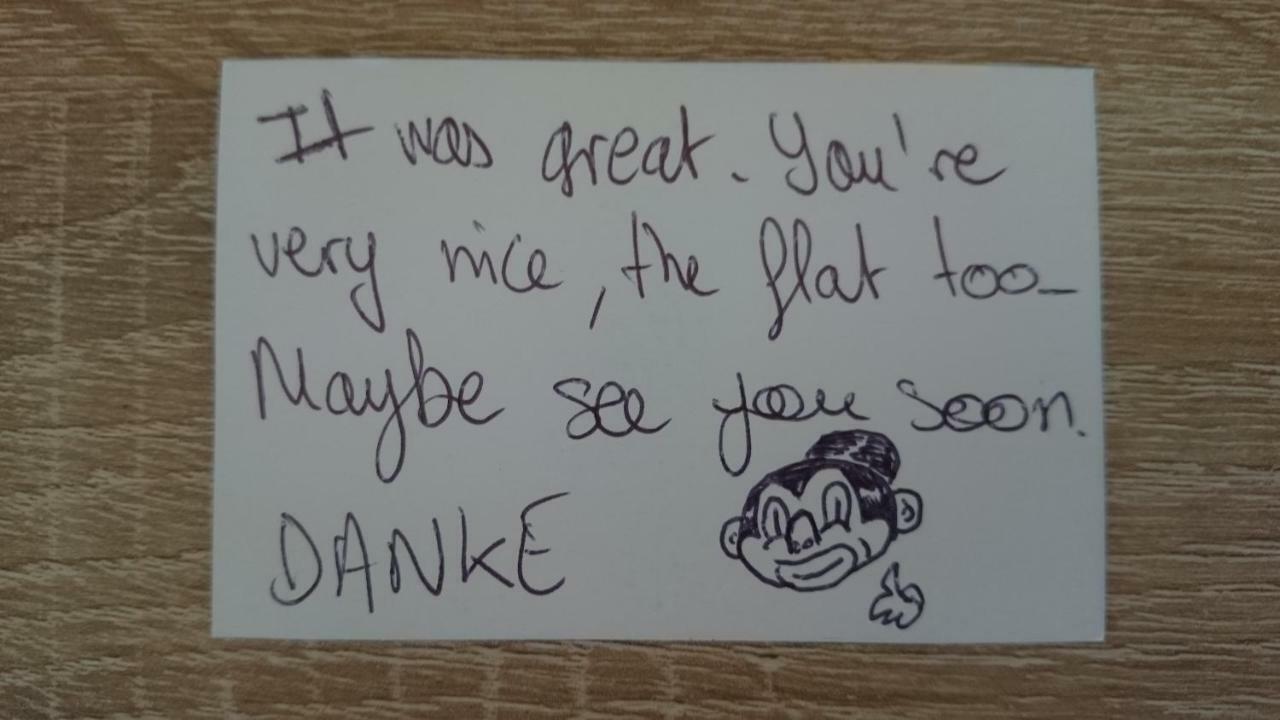 It was great. You're
very nice, the flat too.
Maybe see you soon.
DANKE